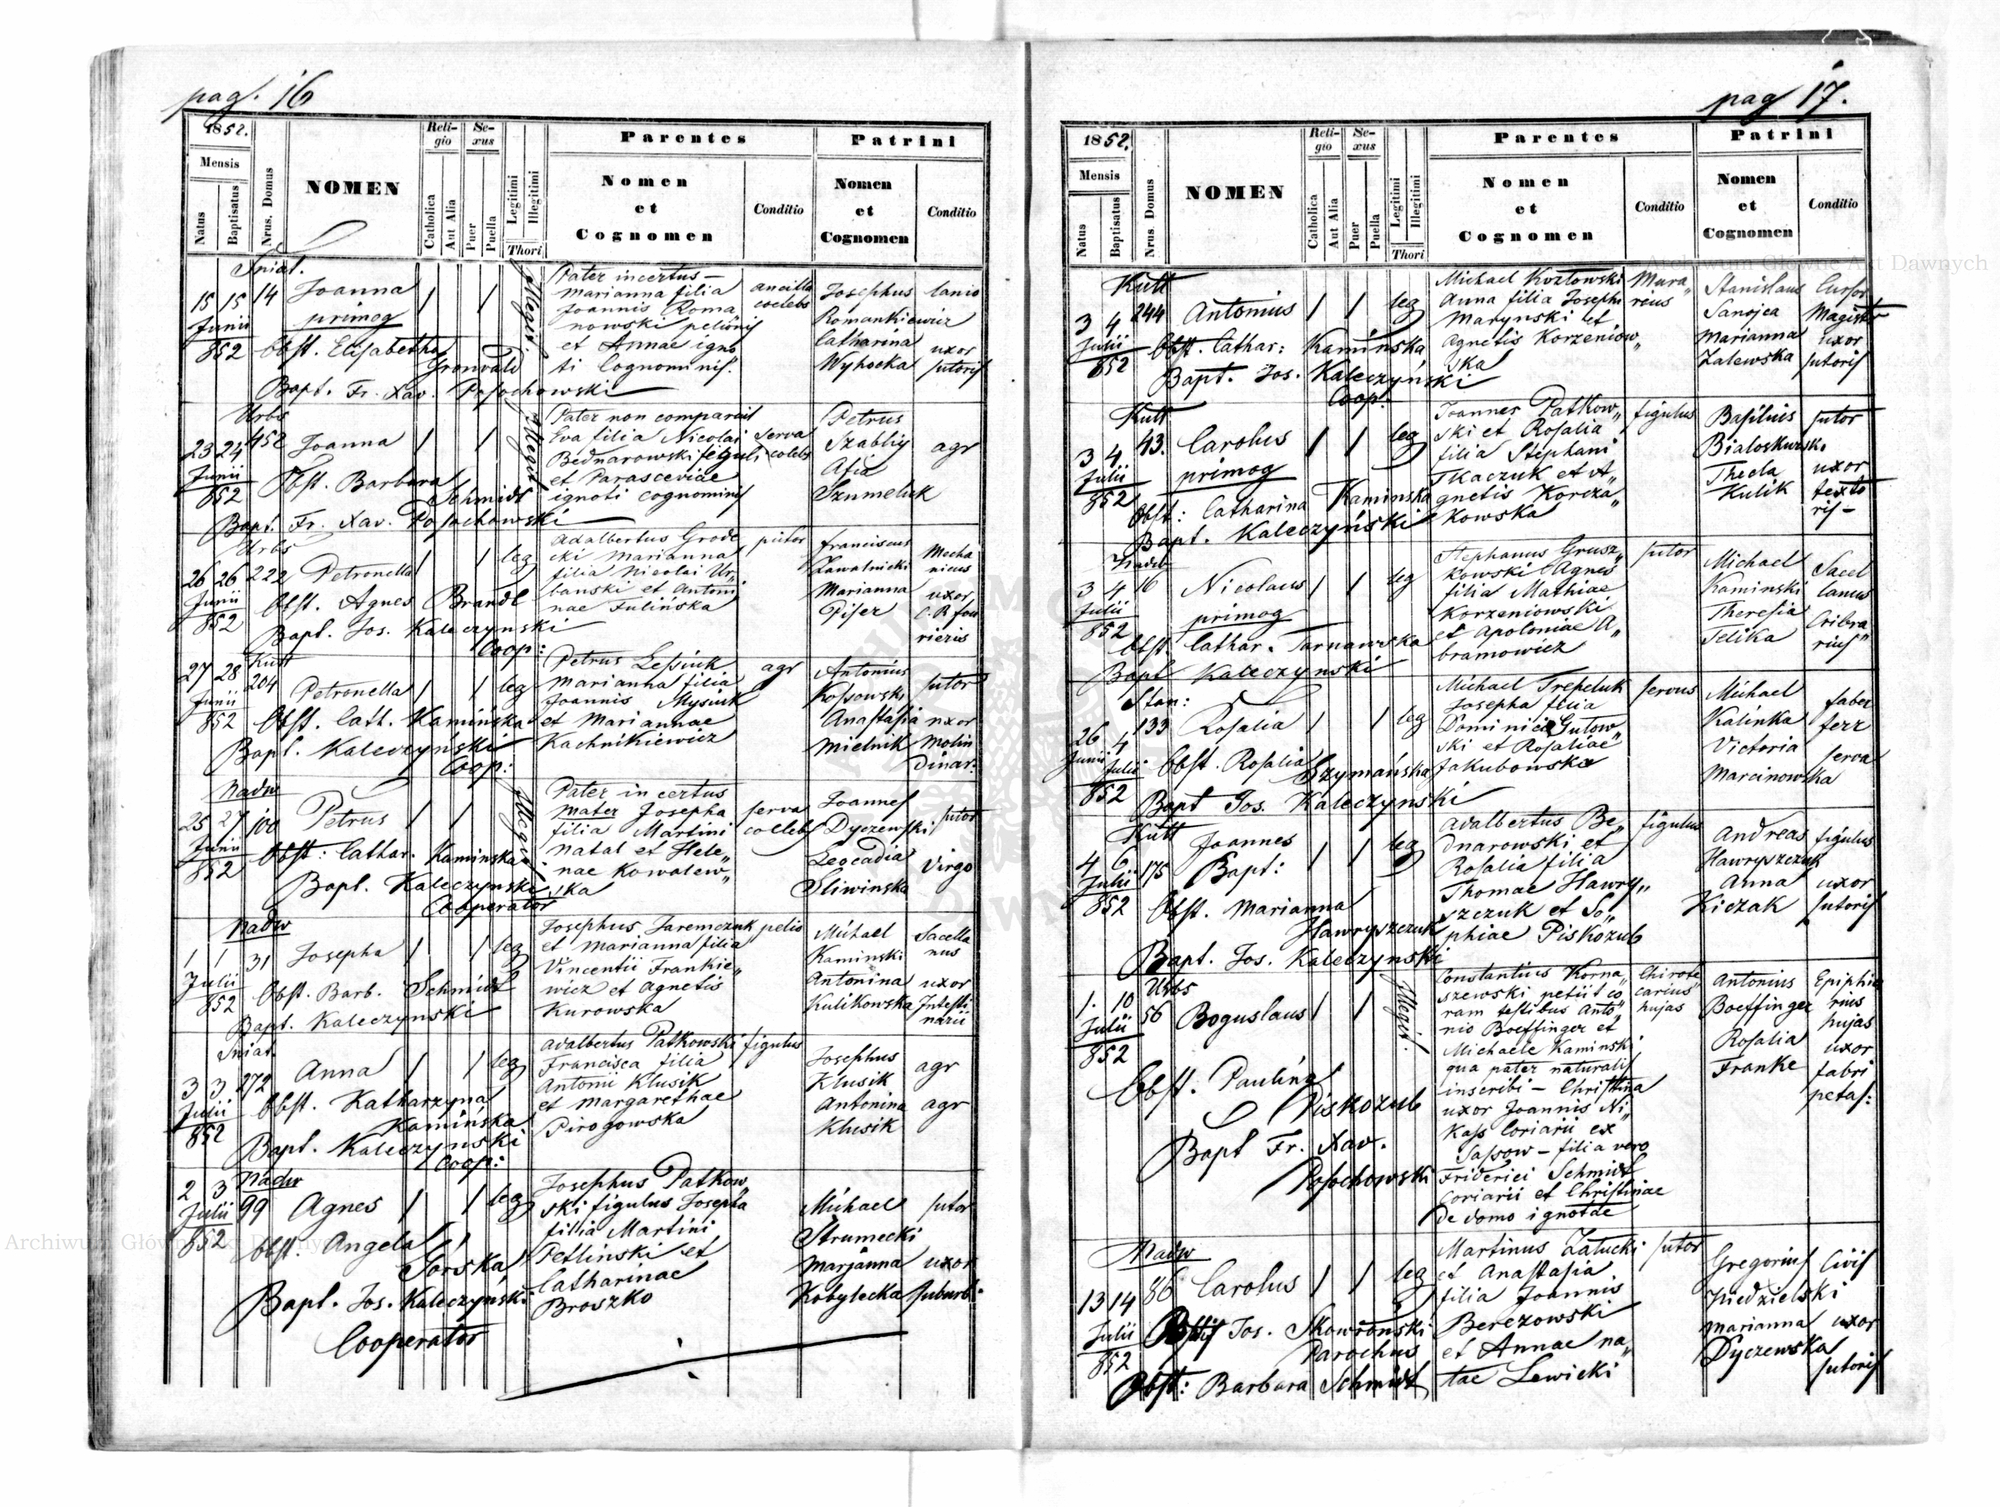 pag. 16
1852.
Mensis
Natus
Baptisatus
Nrus. Domus
NOMEN
Reli-
gio
Catholica
Aut Alia
Se-
xus
Puer
Puella
Legitimi
Illegitimi
Thori
Parentes
Nomen
et
Cognomen
Conditio
Patrini
Nomen
et
Cognomen
Conditio
Sniat.
15 15 14 Joanna 1 1 Illegit.
primog
Junii
852
Obst. Elisabetha
Gronvald
Bapt. Fr. Xav. Posochowski
Pater incertus —
Marianna filia
Joannis Roma
nowski pelionis
et Annae igno
ti Cognominis.
ancilla
coelebs
Josephus
Romankiewicz
Catharina
Wyhocka
lanio
uxor
sutoris
Urbs
23 24 452 Joanna 1 1 Illegit
Junii
852
Obst. Barbara
Schmidt
Bapt. Fr. Xav. Posochowski
Pater non comparuit
Eva filia Nicolai
Bednarowski figuli
et Parasceviae
ignoti cognominis
serva
coelebs
Petrus
Szabliy
Afia
Szumeluk
agr
Urbs
26 26 222 Petronella 1 1 leg
Junii
852
Obst. Agnes Brandt
Bapt. Jos. Kaleczynski
Coop:
Adalbertus Grode
cki Marianna
filia Nicolai Ur„
banski et Antoni
nae Julińska
sutor
Franciscus
Zawalnicki
Marianna
Piser
Mecha
nicus
uxor
C. R. fou
rierius
Kutt
27 28 204 Petronella 1 1 leg
Junii
852
Obst. Cath. Kamińska
Bapt. Kaleczyński
Coop:
Petrus Lesiuk
Marianna filia
Joannis Mysiuk
et Mariannae
Kachnikiewicz
agr
Antonius
Kossowski
Anastasia
Mielnik
sutor
uxor
Molin
dinar:
Nadw
25 27 100 Petrus 1 1 Illegit
Junii
852
Obst: Cathar. Kaminska
Bapt. Kaleczynski
Cooperator
Pater incertus
mater Josepha
filia Martini
Natal et Hele„
nae Kowalew„
ska
serva
coelebs
Joannes
Dyczewski
Leocadia
Sliwinska
sutor
Virgo
Nadw
1 1 31 Josepha 1 1 leg
Julii
852
Obst. Barb. Schmidt
Bapt. Kaleczynski
Josephus Jaremczuk
et Marianna filia
Vincentii Frankie„
wicz et Agnetis
Kurowska
pelio
Michael
Kaminski
Antonina
Kulikowska
Sacella
nus
uxor
Intesti
narii
Sniat.
3 3 272 Anna 1 1 leg
Julii
852
Obst. Katharzyna
Kamińska
Bapt. Kaleczynski
Coop:
Adalbertus Patkowski
Francisca filia
Antonii Klusik
et Margarethae
Pirogowska
figulus
Josephus
Klusik
Antonina
Klusik
agr
agr
Nadw
2 3 99 Agnes 1 1 leg
Julii
852
Obst: Angela
Górska
Bapt. Jos. Kaleczyński
Cooperator
Josephus Patkow„
ski figulus Josepha
filia Martini
Petliński et
Catharinae
Broszko
Michael
Strumecki
Marjanna
Kobylecka
sutor
uxor
suburb.
pag 17.
1852.
Mensis
Natus
Baptisatus
Nrus. Domus
NOMEN
Reli-
gio
Catholica
Aut Alia
Se-
xus
Puer
Puella
Legitimi
Illegitimi
Thori
Parentes
Nomen
et
Cognomen
Conditio
Patrini
Nomen
et
Cognomen
Conditio
Kutt
3 4 244 Antonius 1 1 leg
Julii
852
Obst. Cathar: Kamińska
Bapt. Jos. Kaleczyński
Coop:
Michael Kozłowski
Anna filia Josephi
Marynski et
Agnetis Korzeniow„
ska
Mura„
reus
Stanislaus
Sanojca
Marianna
Zalewska
Cursor
Magistr
uxor
sutoris
Kutt
3 4 43. Carolus 1 1 leg
primog
Julii
852
Obst: Catharina Kaminska
Bapt. Kaleczyński
Joannes Patkow„
ski et Rosalia
filia Stephani
Tkaczuk et A„
gnetis Korcza„
kowska
figulus
Basilius
Bialoskurski
Thecla
Kulik
sutor
uxor
texto
ris —
Nadw
3 4 16 Nicolaus 1 1 leg
primog
Julii
852
Obst. Cathar. Tarnawska
Bapt Kaleczynski
Stephanus Grusz„
kowski Agnes
filia Mathiae
Korzeniowski
et Apoloniae A„
bramowicz
sutor
Michael
Kaminski
Theresia
Jelika
Sacel
lanus
Cribra
rius
Stan:
26 4 133 Rosalia 1 1 leg
Junii Julii
852
Obst. Rosalia Szymańska
Bapt Jos. Kaleczynski
Michael Trepeluk
Josepha filia
Dominici Gutow„
ski et Rosaliae
Jakubowska
servus
Michael
Kalinka
Victoria
Marcinowska
faber
ferr
serva
Kutt
4 6 175 Joannes 1 1 leg
Bapt:
Julii
852
Obst. Marianna
Hawryszczuk
Bapt. Jos. Kaleczynski
Adalbertus Be„
dnarowski et
Rosalia filia
Thomae Hawry„
szczuk et So„
phiae Piskozub
figulus
Andreas
Hawryszczuk
Anna
Kiczak
figulus
uxor
sutoris
Urbs
1. 10 56 Boguslaus 1 1 Illegit.
Julii
852
Obst. Paulina
Piskozub
Bapt Fr. Xav.
Posochowski
Constantius Korna„
szewski petiit co„
ram testibus Anto„
nio Boeffinger et
Michaele Kaminski
qua pater naturalis
inscribi — Christina
uxor Joannis Ni„
kass Coriarii ex
Sassow — filia vero
Friderici Schmidt
Coriarii et Christinae
de domo ignotae
Chirote
carius
hujas
Antonius
Boeffinger
Rosalia
Franke
Ephip
rius
hujas
uxor
fabri
Nadw
13 14 86 Carolus 1 1 leg
Julii
852
Jos. Skowroński
Parochus
Obst: Barbara Schmidt
Martinus Załucki
et Anastasia
filia Joannis
Berezowski
et Annae na„
tae Lewicki
sutor
Gregorius
Niedzielski
Marianna
Dyczewska
Civis
uxor
sutoris
Archiwum Główne Akt Dawnych
Archiwum Główne Akt Dawnych